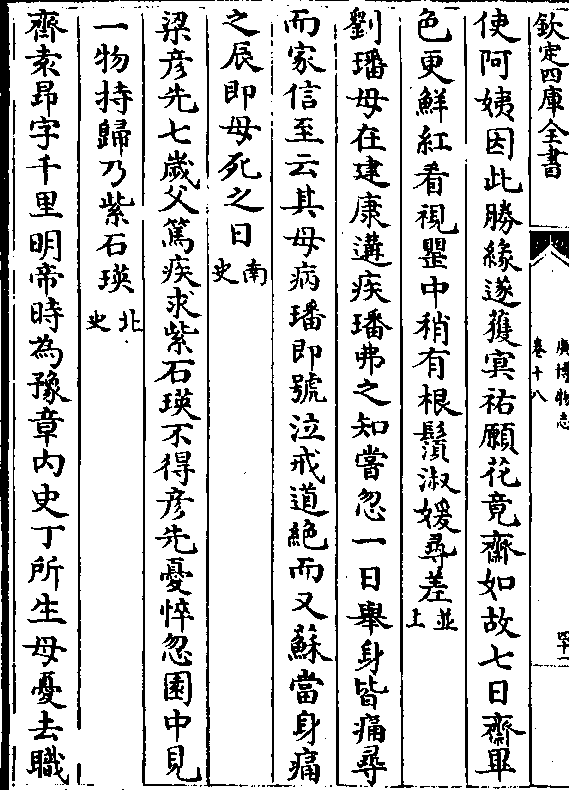 欽定四庫全書
廣博物志
卷十八
四十二
使阿姨因此勝緣遂獲冥祐願花竟齋如故七日齋畢
色更鮮紅看視甖中稍有根鬚淑媛尋差並上
劉璠母在建康遘疾璠弗之知嘗忽一日舉身皆痛尋
而家信至云其母病璠即號泣戒道絶而又蘇當身痛
之辰即母死之日南史
梁彦先七歲父篤疾求紫石瑛不得彦先憂悴忽園中見
一物持歸乃紫石瑛北史
齊袁昂字千里明帝時為豫章内史丁所生母憂去職